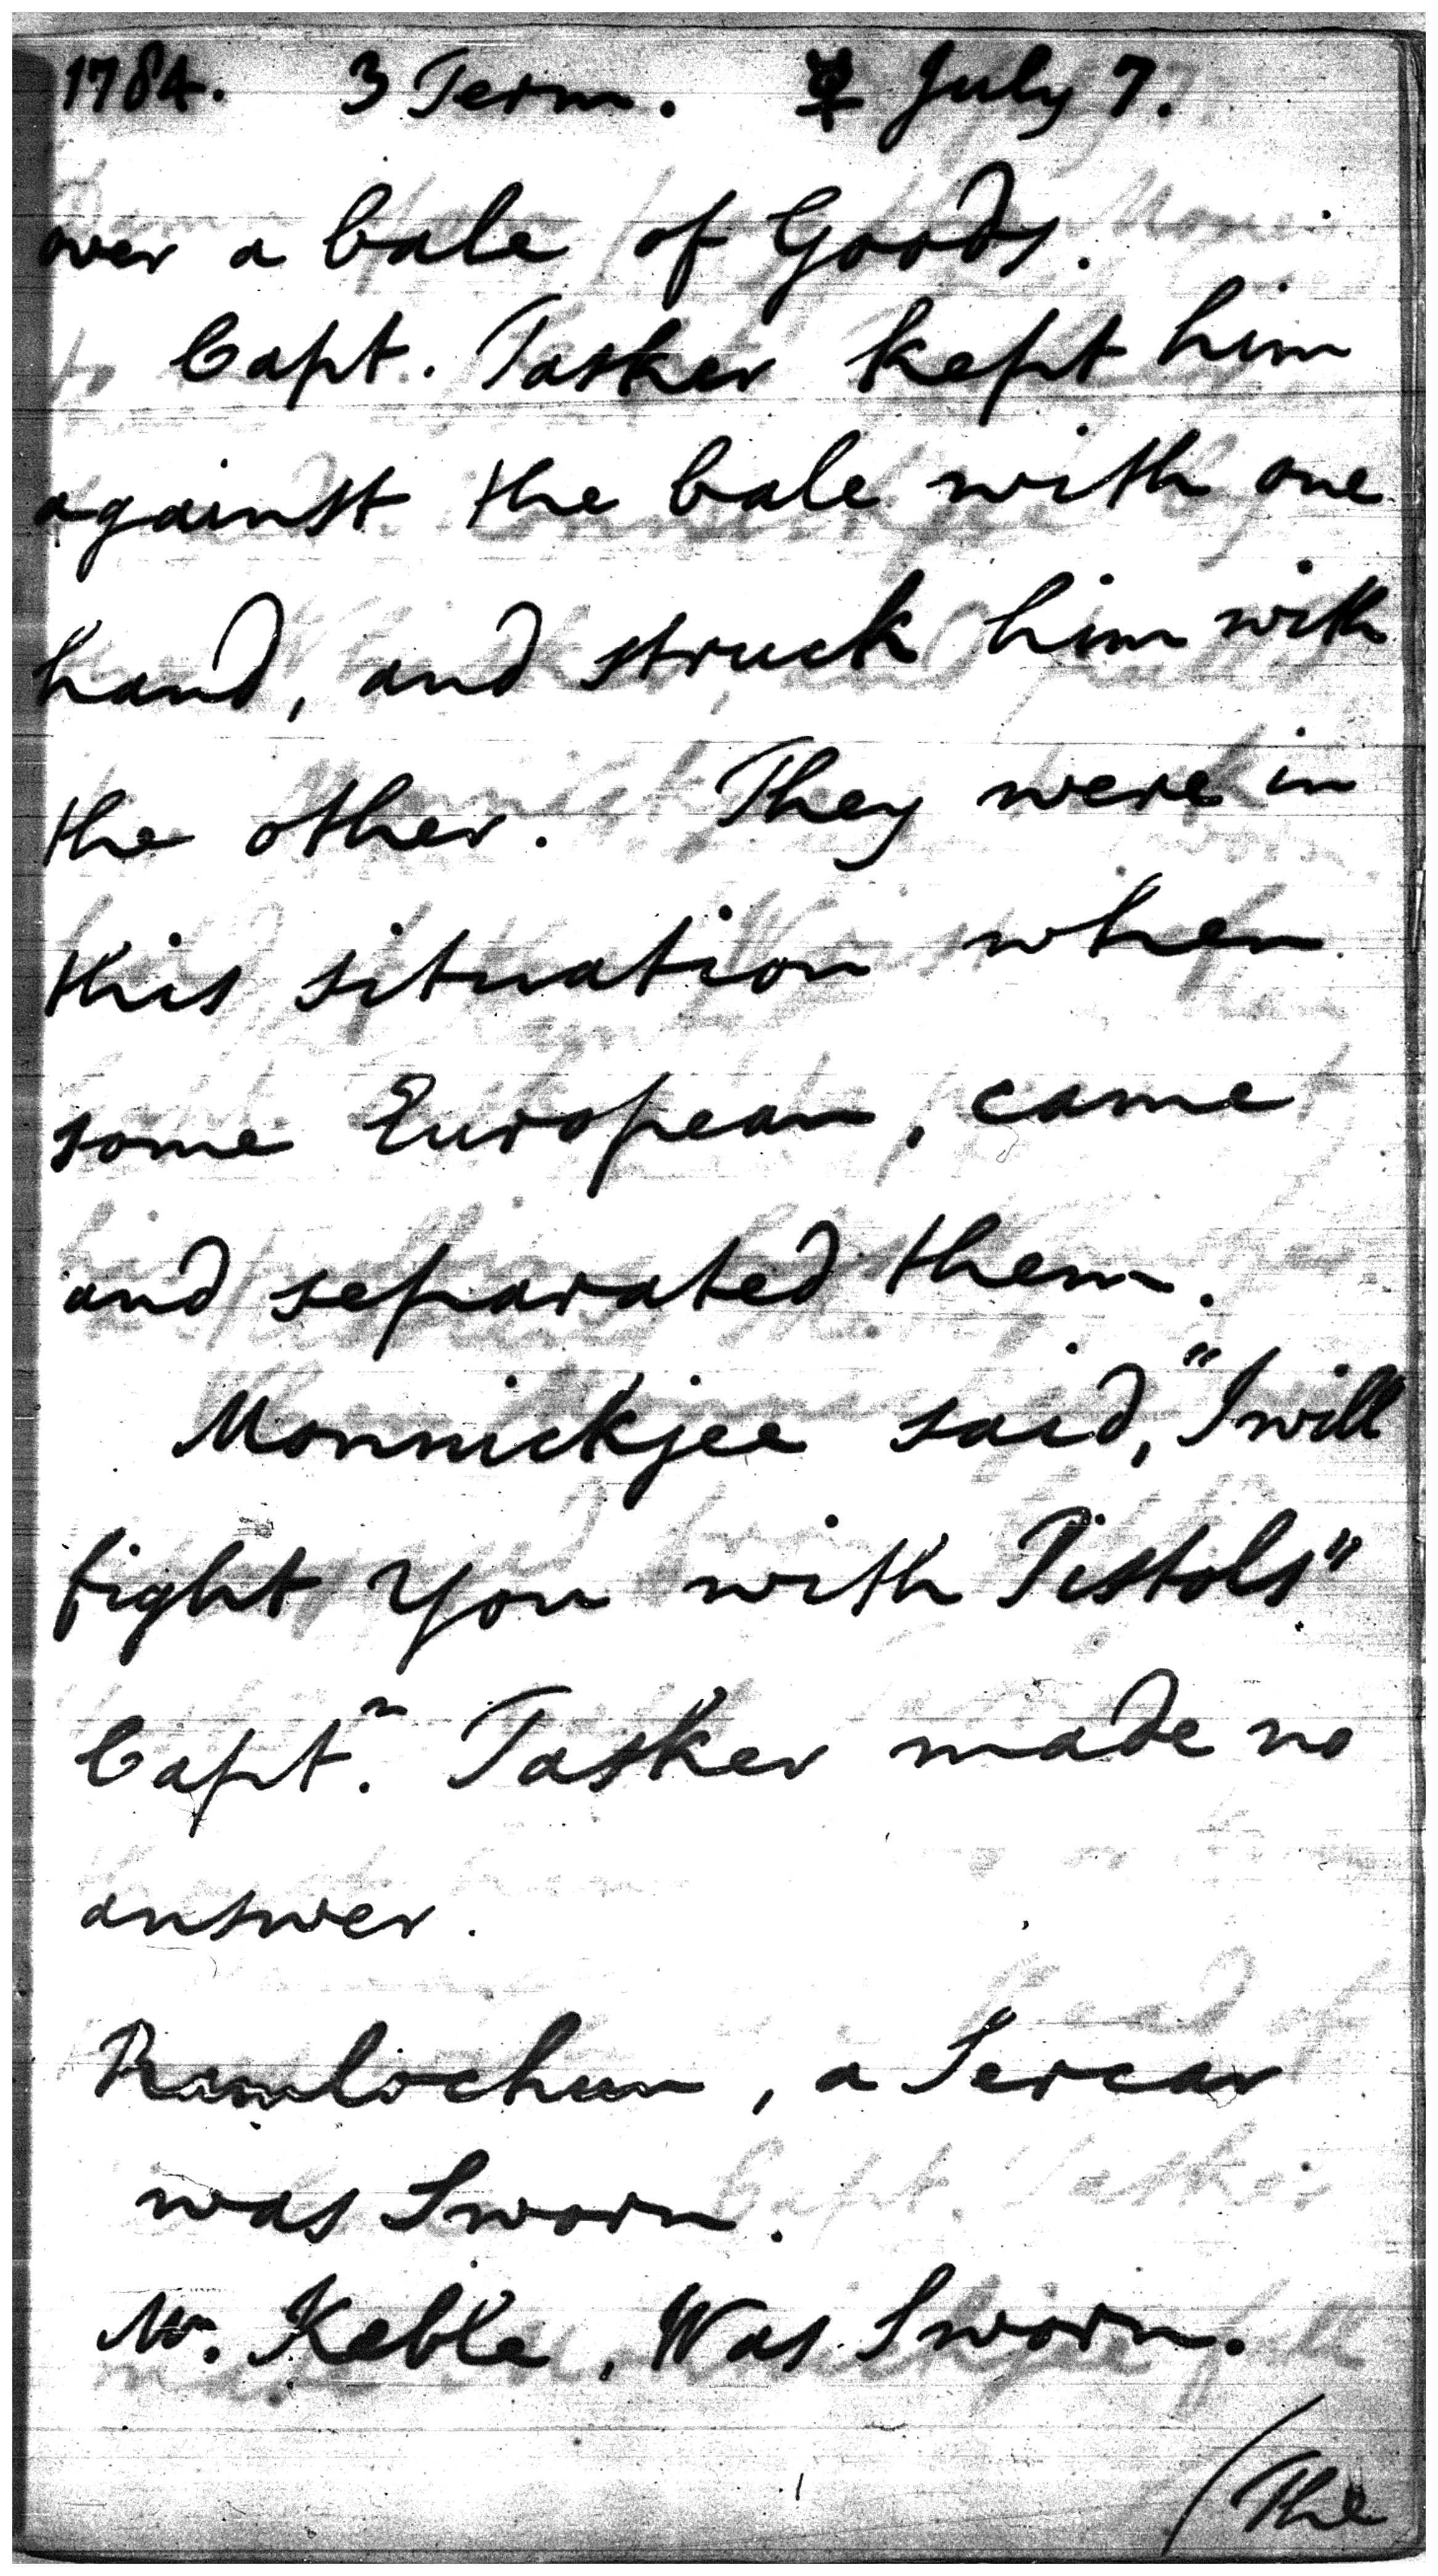 1784. 3 Term. ☿ July 7.
over a bale of Goods.
Capt. Tasker kept him
against the bale with one
hand, and struck him with
the other. They were in
this situation when
some European, came
and separated them.
Monnickjee said, "I will
fight you with Pistols"
Capt.n Tasker made no
answer.
Ramlochun, a Sercar
was Sworn.
Mr. Keble, Was Sworn.
(The